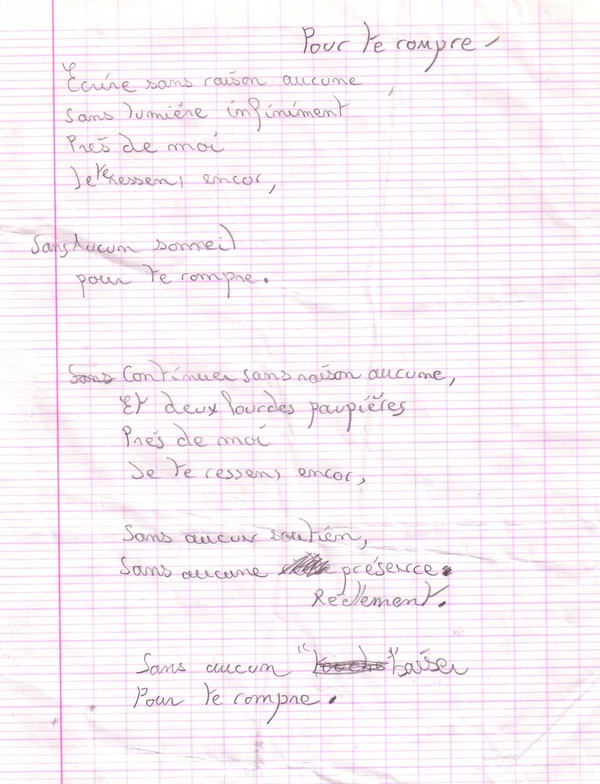 Pour te rompre -
Écrire sans raison aucune,
Sans lumière infiniment
Près de moi
Je te ressens encor,
Sans Aucun sommeil
pour te rompre.
Sans Continuer sans raison aucune,
Et deux lourdes paupières
Près de moi
Je te ressens encor,
Sans aucun soutien,
Sans aucune présence.
Réellement.
Sans aucun " " baiser
Pour te rompre.